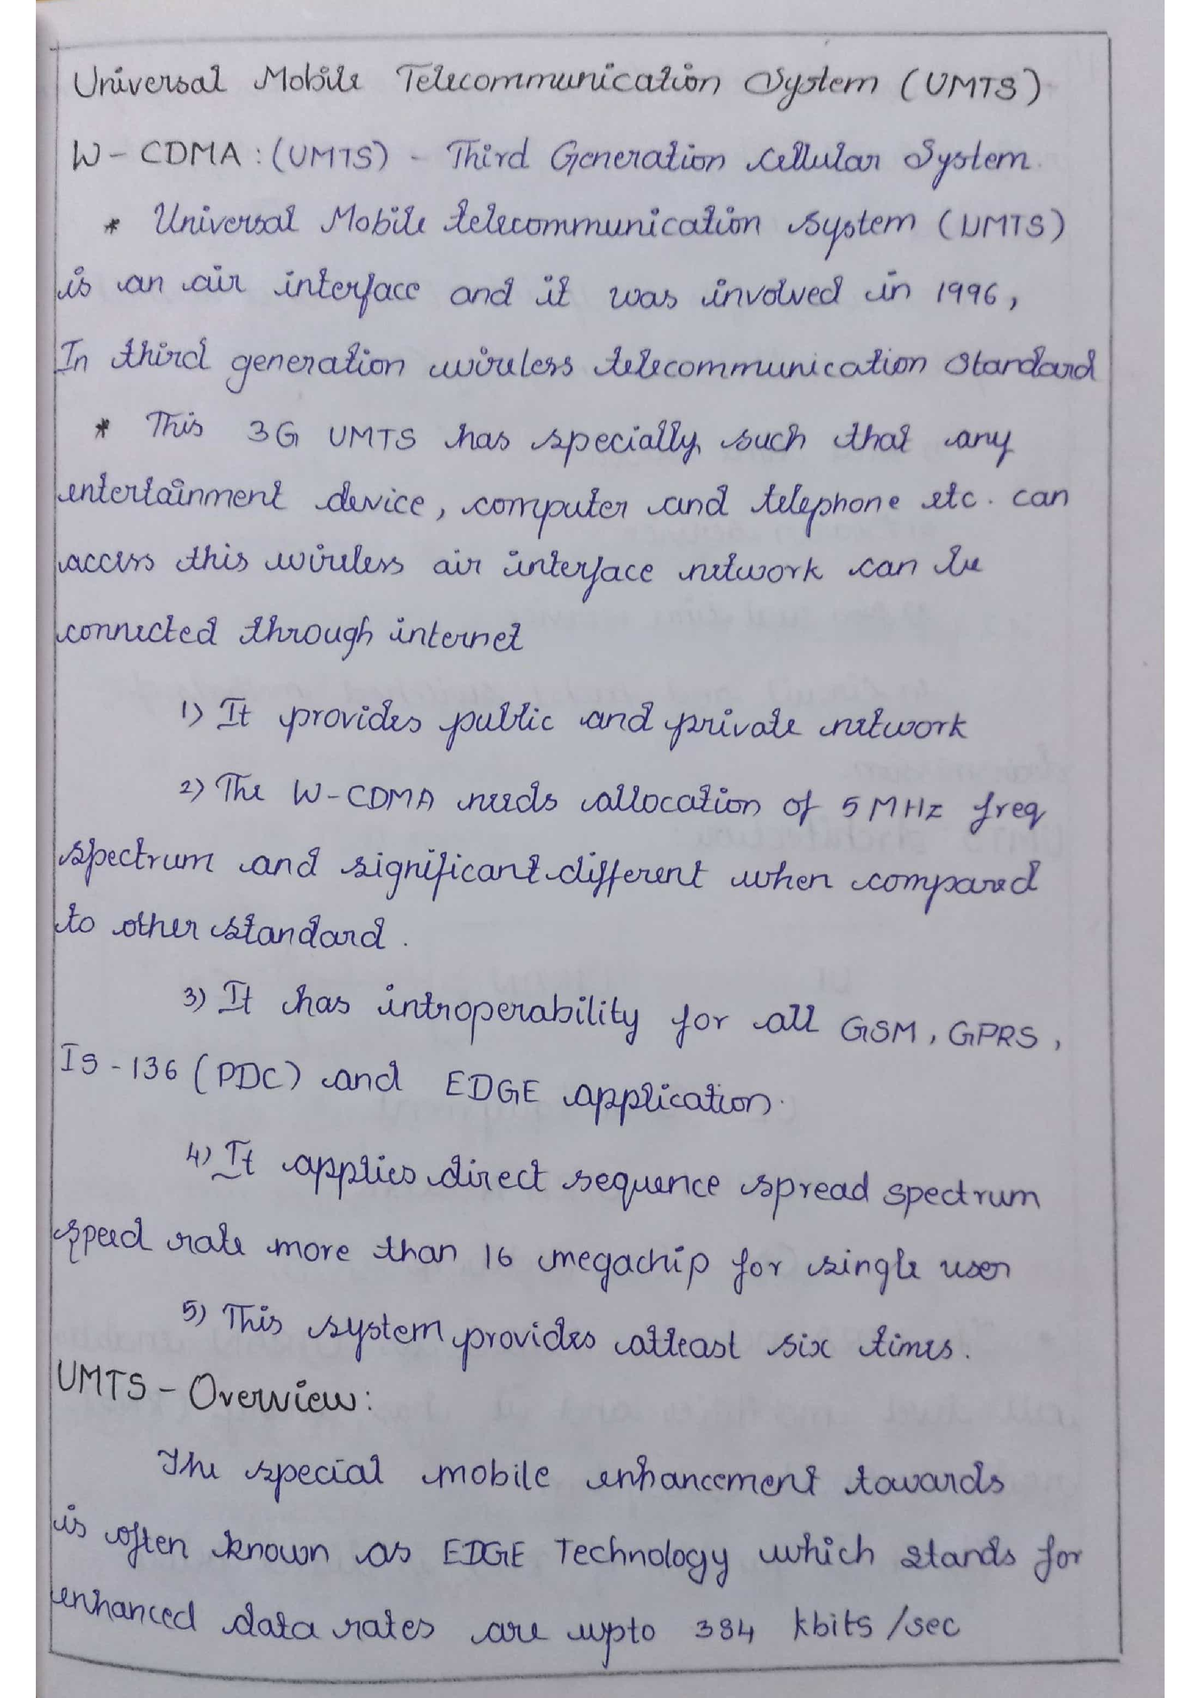 Universal Mobile Telecommunication System (UMTS)
W-CDMA : (UMTS) - Third Generation cellular System.
* Universal Mobile telecommunication system (UMTS)
is an air interface and it was involved in 1996,
In third generation wireless telecommunication standard
* This 3G UMTS has specially such that any
entertainment device, computer and telephone etc. can
access this wireless air interface network can be
connected through internet
1) It provides public and private network
2) The W-CDMA needs allocation of 5 MHz freq
spectrum and significant different when compared
to other standard.
3) It has introperability for all GSM, GPRS,
IS-136 (PDC) and EDGE application.
4) It applies direct sequence spread spectrum
speed rate more than 16 megachip for single user
5) This system provides atleast six times.
UMTS - Overview:
The special mobile enhancement towards
is often known as EDGE Technology which stands for
enhanced data rates are upto 384 kbits/sec